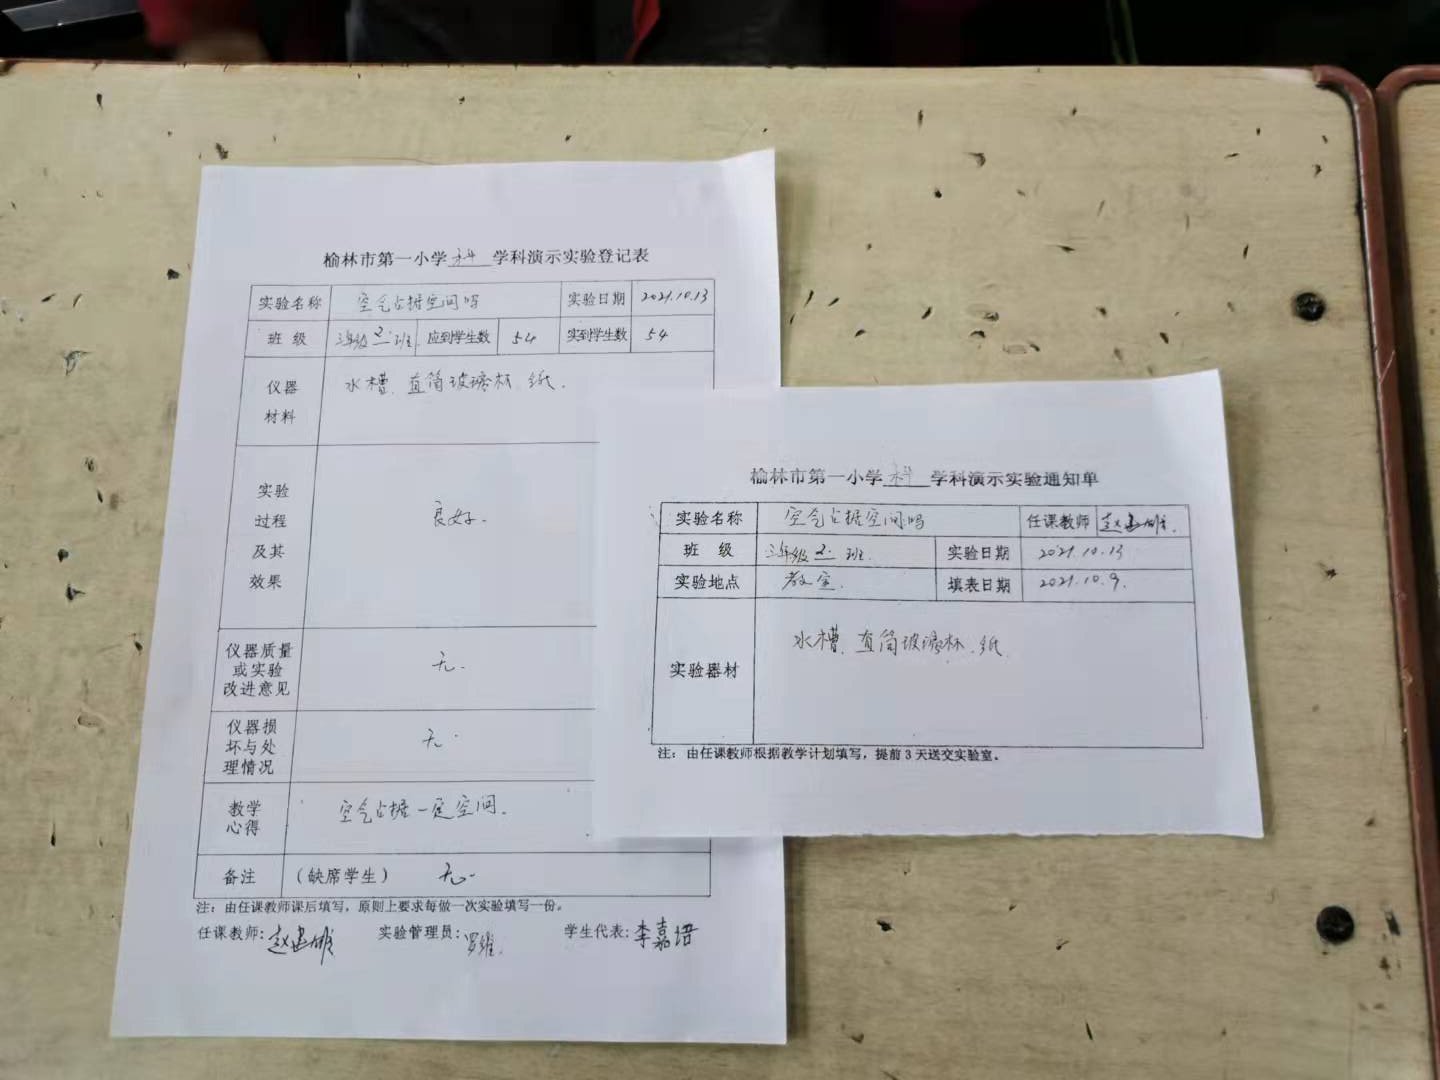 榆林市第一小学 科 学科演示实验登记表
实验名称 空气占据空间吗 实验日期 2021.10.13
班 级 三年级2班 应到学生数 54 实到学生数 54
仪器
材料
水槽、直筒玻璃杯、纸.
实验
过程
及其
效果
良好.
仪器质量
或实验
改进意见
无.
仪器损
坏与处
理情况
无.
教学
心得
空气占据一定空间.
备注 (缺席学生) 无.
注：由任课教师课后填写，原则上要求每做一次实验填写一份。
任课教师: 赵建雄 实验管理员: 罗维. 学生代表: 李嘉珺
榆林市第一小学 科 学科演示实验通知单
实验名称 空气占据空间吗 任课教师 赵建雄.
班 级 三年级2班. 实验日期 2021.10.13
实验地点 教室. 填表日期 2021.10.9.
实验器材
水槽、直筒玻璃杯、纸
注：由任课教师根据教学计划填写，提前3天送交实验室。